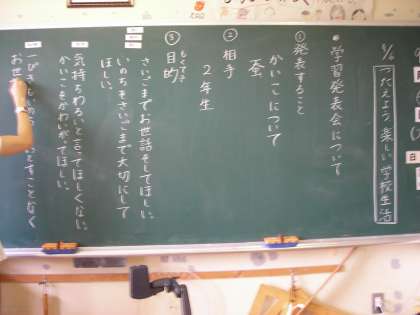 つたえよう楽しい学校生活
●学習発表会について
①発表すること
かいこについて
蚕
②相手
2年生
③目的
もくてき
さいごまでお世話をしてほしい。
いのちをさいごまで大切にして
ほしい。
気持ちわるいと言ってほしくない。
かいこをかわいがってほしい。
お世